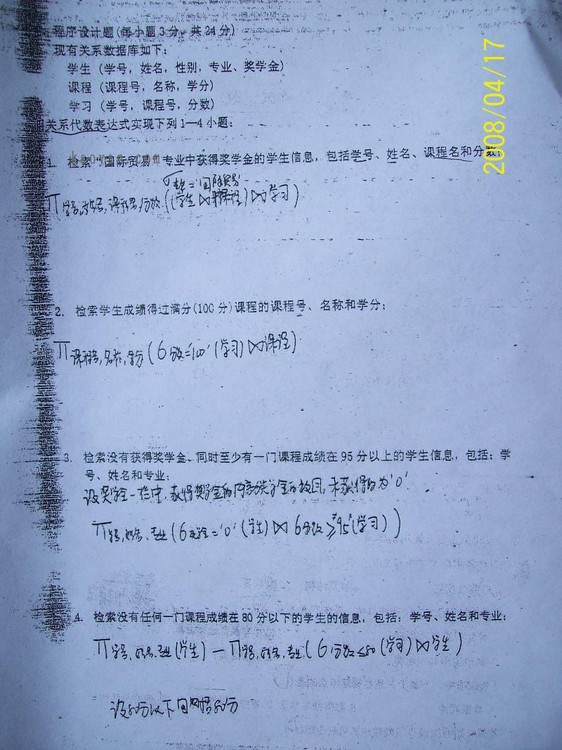 程序设计题(每小题3分，共24分)
现有关系数据库如下：
学生（学号，姓名，性别，专业、奖学金）
课程（课程号，名称，学分）
学习（学号，课程号，分数）
关系代数表达式实现下列1—4小题：
1. 检索"国际贸易"专业中获得奖学金的学生信息，包括学号、姓名、课程名和分数；
σ专业='国际贸易'
Π学号,姓名,课程名,分数((学生⋈课程)⋈学习)
2. 检索学生成绩得过满分(100分)课程的课程号、名称和学分；
Π课程号,名称,学分(σ分数='100'(学习)⋈课程)
3. 检索没有获得奖学金、同时至少有一门课程成绩在95分以上的学生信息，包括：学
号、姓名和专业；
设奖学金一栏中，获得奖学金的内容为奖学金的数目，未获得的为'0'
Π学号,姓名,专业(σ奖学金='0'(学生)⋈σ分数≥'95'(学习))
4. 检索没有任何一门课程成绩在80分以下的学生的信息，包括：学号、姓名和专业；
Π学号,姓名,专业(学生)－Π学号,姓名,专业(σ分数≤80(学习)⋈学生)
设80分以下包括80分
2008/04/17